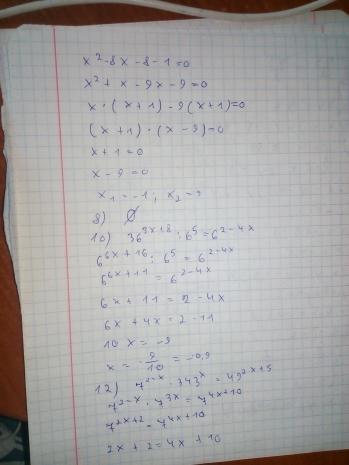 x² - 8x - 8 - 1 = 0
x² + x - 9x - 9 = 0
x · (x + 1) - 9(x + 1) = 0
(x + 1) · (x - 9) = 0
x + 1 = 0
x - 9 = 0
x₁ = -1; x₂ = 9
8) ∅
10) 36^(3x+8) : 6⁵ = 6^(2-4x)
6^(6x+16) : 6⁵ = 6^(2-4x)
6^(6x+11) = 6^(2-4x)
6x + 11 = 2 - 4x
6x + 4x = 2 - 11
10x = -9
x = -9/10 = -0,9
12) 7^(2-x) · 343^x = 49^(2x+5)
7^(2-x) · 7^(3x) = 7^(4x+10)
7^(2x+2) = 7^(4x+10)
2x + 2 = 4x + 10